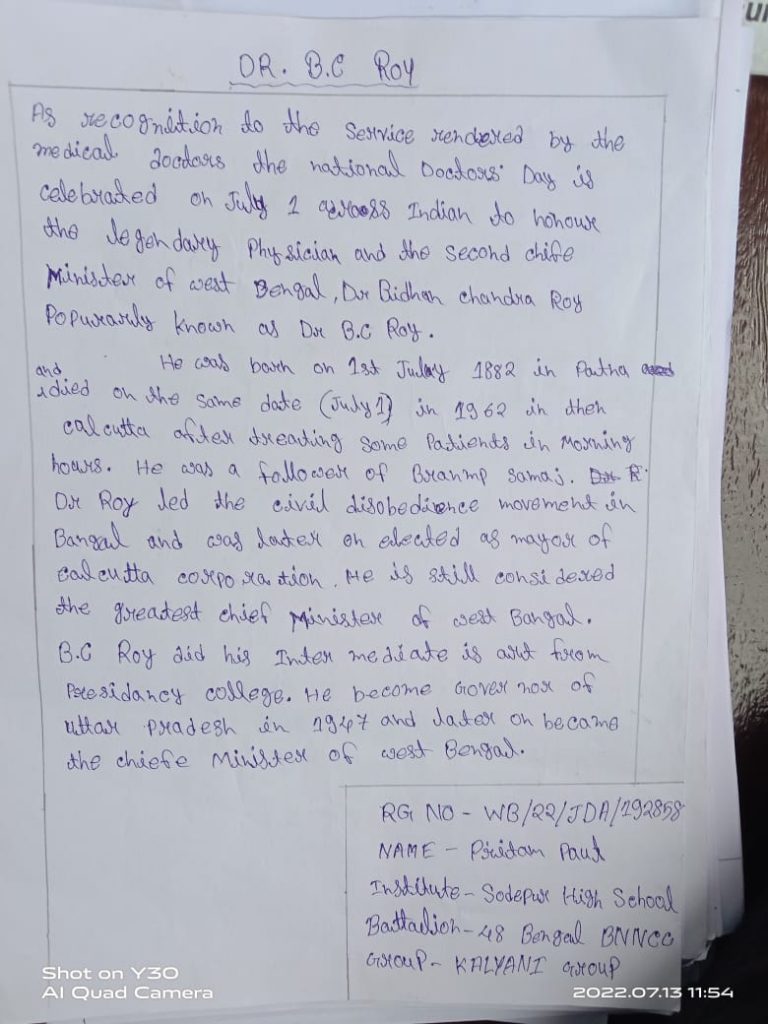 DR. B.C Roy
As recognition to the Service rendered by the
medical doctors the national Doctors' Day is
celebrated on July 1 across Indian to honour
the legendary Physician and the second chife
Minister of west Bengal, Dr Bidhan chandra Roy
Popurarly known as Dr B.C Roy.
He was born on 1st July 1882 in Patna
and died on the same date (July 1) in 1962 in then
calcutta after treating some Patients in Morning
hours. He was a follower of Branmp samaj.
Dr Roy led the civil disobedience movement in
Bangal and was later on elected as mayor of
calcutta corporation. He is still considered
the greatest chief Minister of west Bangal.
B.C Roy did his Inter mediate is art from
Presidancy college. He become Governor of
uttar Pradesh in 1947 and later on became
the chiefe Minister of west Bengal.
RG NO - WB/22/JDA/192858
NAME - Pritam Paul
Institute - Sodepur High School
Battalion - 48 Bengal BNNCC
Group - KALYANI Group
Shot on Y30
AI Quad Camera
2022.07.13 11:54